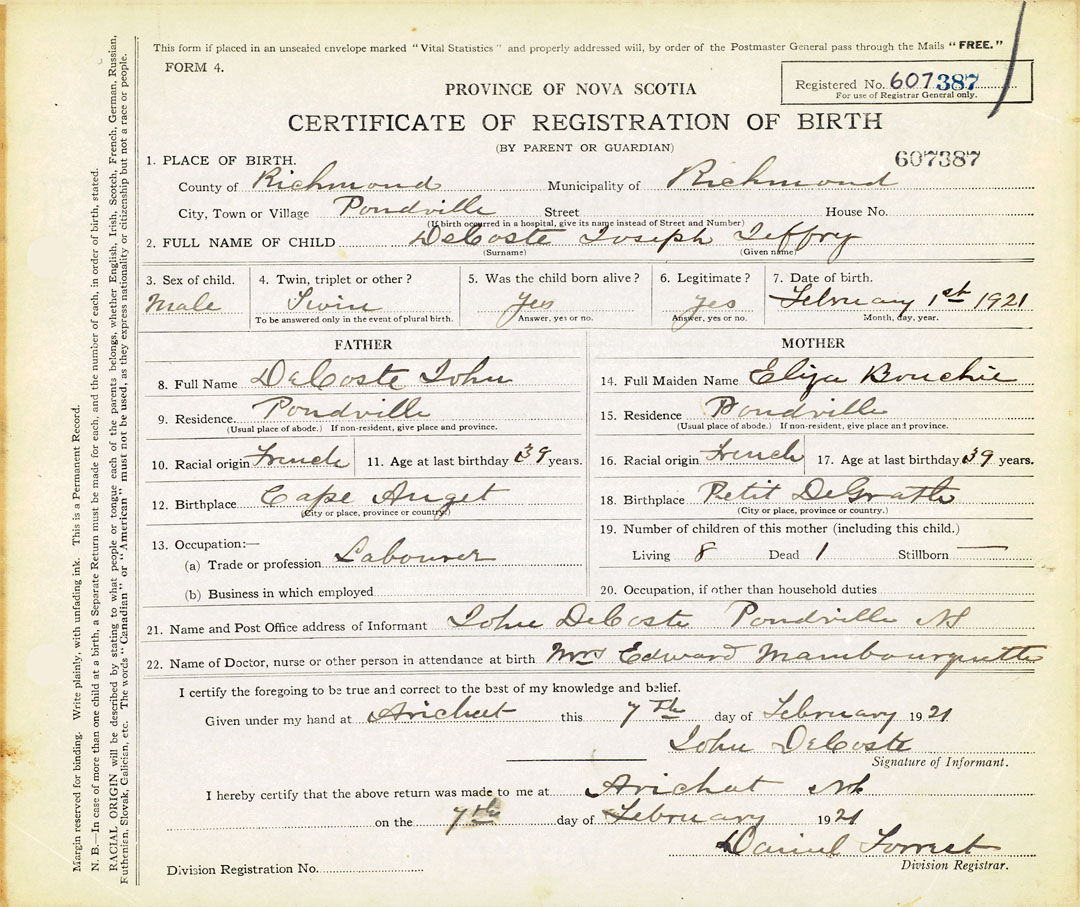 This form if placed in an unsealed envelope marked "Vital Statistics" and properly addressed will, by order of the Postmaster General pass through the Mails "FREE."
FORM 4.
Registered No. 607387
For use of Registrar General only.
PROVINCE OF NOVA SCOTIA
CERTIFICATE OF REGISTRATION OF BIRTH
(BY PARENT OR GUARDIAN)
607387
1. PLACE OF BIRTH.
County of Richmond Municipality of Richmond
City, Town or Village Pondville Street House No.
(If birth occurred in a hospital, give its name instead of Street and Number)
2. FULL NAME OF CHILD DeCoste Joseph Jeffry
(Surname) (Given name)
3. Sex of child. 4. Twin, triplet or other? 5. Was the child born alive? 6. Legitimate? 7. Date of birth.
Male Twin Yes yes February 1st 1921
To be answered only in the event of plural birth. Answer, yes or no. Answer, yes or no. Month, day, year.
FATHER MOTHER
8. Full Name DeCoste John 14. Full Maiden Name Eliza Bouchie
9. Residence. Pondville 15. Residence Pondville
(Usual place of abode.) If non-resident, give place and province. (Usual place of abode.) If non-resident, give place and province.
10. Racial origin French 11. Age at last birthday 39 years. 16. Racial origin French 17. Age at last birthday 39 years.
12. Birthplace Cape Auget 18. Birthplace Petit DeGrath
(City or place, province or country.) (City or place, province or country.)
13. Occupation:— 19. Number of children of this mother (including this child.)
(a) Trade or profession Labourer Living 8 Dead 1 Stillborn —
(b) Business in which employed 20. Occupation, if other than household duties
21. Name and Post Office address of Informant John DeCoste Pondville NS
22. Name of Doctor, nurse or other person in attendance at birth Mrs Edward Mambourquette
I certify the foregoing to be true and correct to the best of my knowledge and belief.
Given under my hand at Arichat this 7th day of February 1921
John DeCoste
Signature of Informant.
I hereby certify that the above return was made to me at Arichat NS
on the 7th day of February 1921
Daniel Forrest
Division Registration No. Division Registrar.
Margin reserved for binding. Write plainly, with unfading ink. This is a Permanent Record.
N. B.—In case of more than one child at a birth, a Separate Return must be made for each, and the number of each, in order of birth, stated.
RACIAL ORIGIN will be described by stating to what people or tongue each of the parents belongs, whether English, Irish, Scotch, French, German, Russian,
Ruthenian, Slovak, Galician, etc. The words "Canadian" or "American" must not be used, as they express nationality or citizenship but not a race or people.